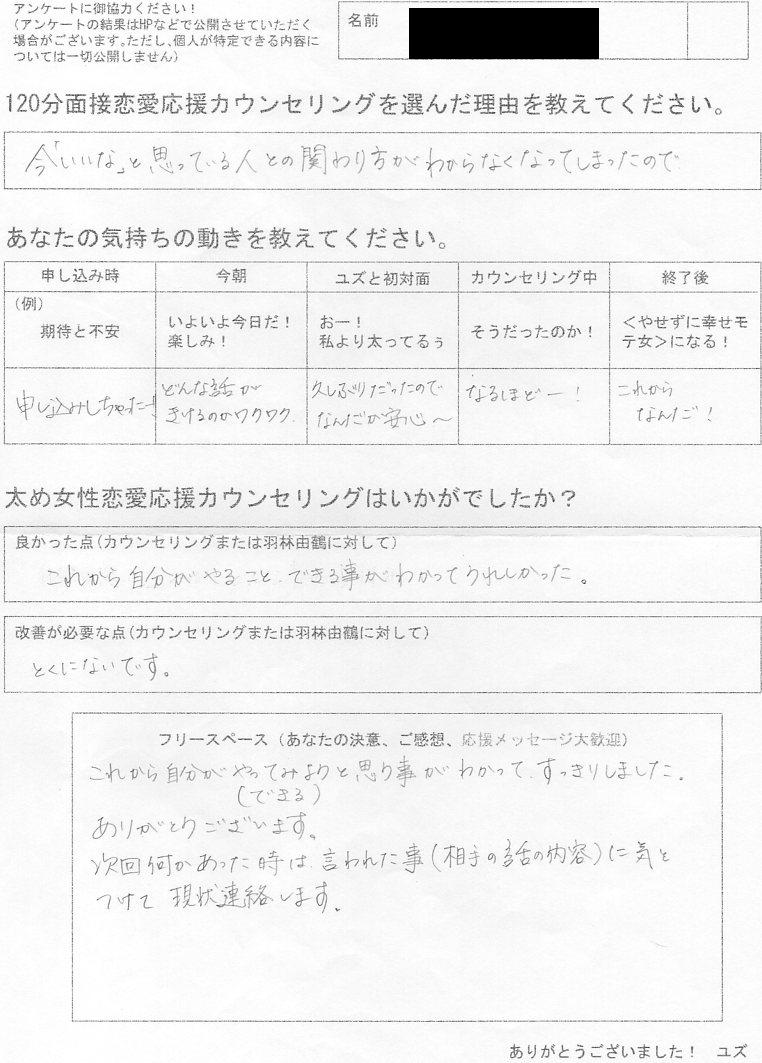 アンケートに御協力ください！
（アンケートの結果はHPなどで公開させていただく
場合がございます。ただし、個人が特定できる内容に
ついては一切公開しません）
名前
120分面接恋愛応援カウンセリングを選んだ理由を教えてください。
今「いいな」と思っている人との関わり方がわからなくなってしまったので
あなたの気持ちの動きを教えてください。
申し込み時 今朝 ユズと初対面 カウンセリング中 終了後
（例）
期待と不安
いよいよ今日だ！
楽しみ！
おー！
私より太ってるぅ
そうだったのか！
＜やせずに幸せモ
テ女＞になる！
申し込みしちゃったー！
どんな話が
きけるのかワクワク
久しぶりだったので
なんだか安心～
なるほどー！
これから
なんだ！
太め女性恋愛応援カウンセリングはいかがでしたか？
良かった点（カウンセリングまたは羽林由鶴に対して）
これから自分がやること、できる事がわかってうれしかった。
改善が必要な点（カウンセリングまたは羽林由鶴に対して）
とくにないです。
フリースペース（あなたの決意、ご感想、応援メッセージ大歓迎）
これから自分がやってみようと思う事がわかって、すっきりしました。
（できる）
ありがとうございます。
次回何かあった時は、言われた事（相手の話の内容）に気を
つけて現状連絡します。
ありがとうございました！　ユズ